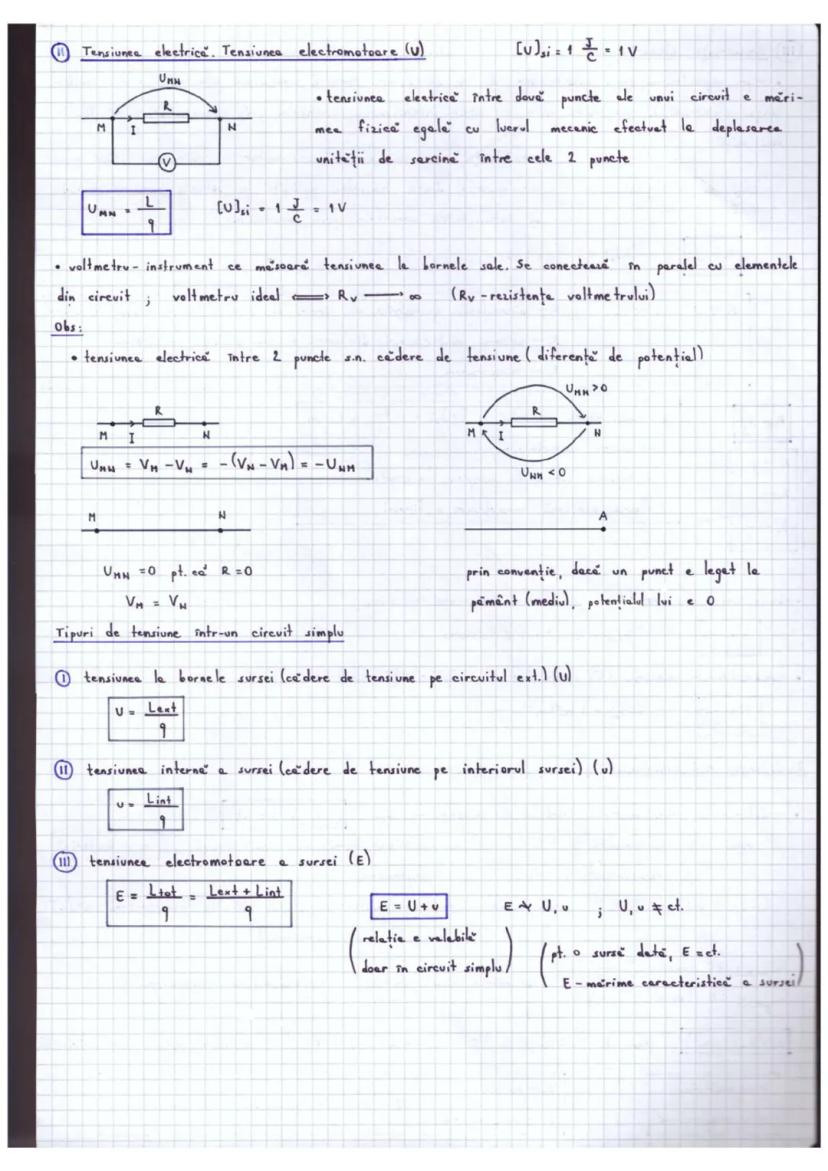 II Tensiunea electrică. Tensiunea electromotoare (U) [U]si = 1 J/C = 1V
UMN
R
M I N
V
• tensiunea electrică între două puncte ale unui circuit e mări-
mea fizică egală cu lucrul mecanic efectuat la deplasarea
unității de sarcină între cele 2 puncte
UMN = L/q [U]si = 1 J/C = 1V
• voltmetru - instrument ce măsoară tensiunea la bornele sale. Se conectează în paralel cu elementele
din circuit ; voltmetru ideal ⟺ RV → ∞ (RV - rezistența voltmetrului)
Obs:
• tensiunea electrică între 2 puncte s.n. cădere de tensiune (diferență de potențial)
R
M I N
UMN > 0
R
M I N
UNM < 0
UMN = VM - VN = -(VN - VM) = -UNM
M N
A
UMN = 0 pt. că R = 0
VM = VN
prin convenție, dacă un punct e legat la
pământ (mediu), potențialul lui e 0
Tipuri de tensiune într-un circuit simplu
I tensiunea la bornele sursei (cădere de tensiune pe circuitul ext.) (U)
U = Lext/q
II tensiunea internă a sursei (cădere de tensiune pe interiorul sursei) (u)
u = Lint/q
III tensiunea electromotoare a sursei (E)
E = Ltot/q = Lext + Lint/q
E = U + u E ≁ U, u ; U, u ≠ ct.
(relația e valabilă
doar în circuit simplu)
(pt. o sursă dată, E = ct.
E - mărime caracteristică a sursei)